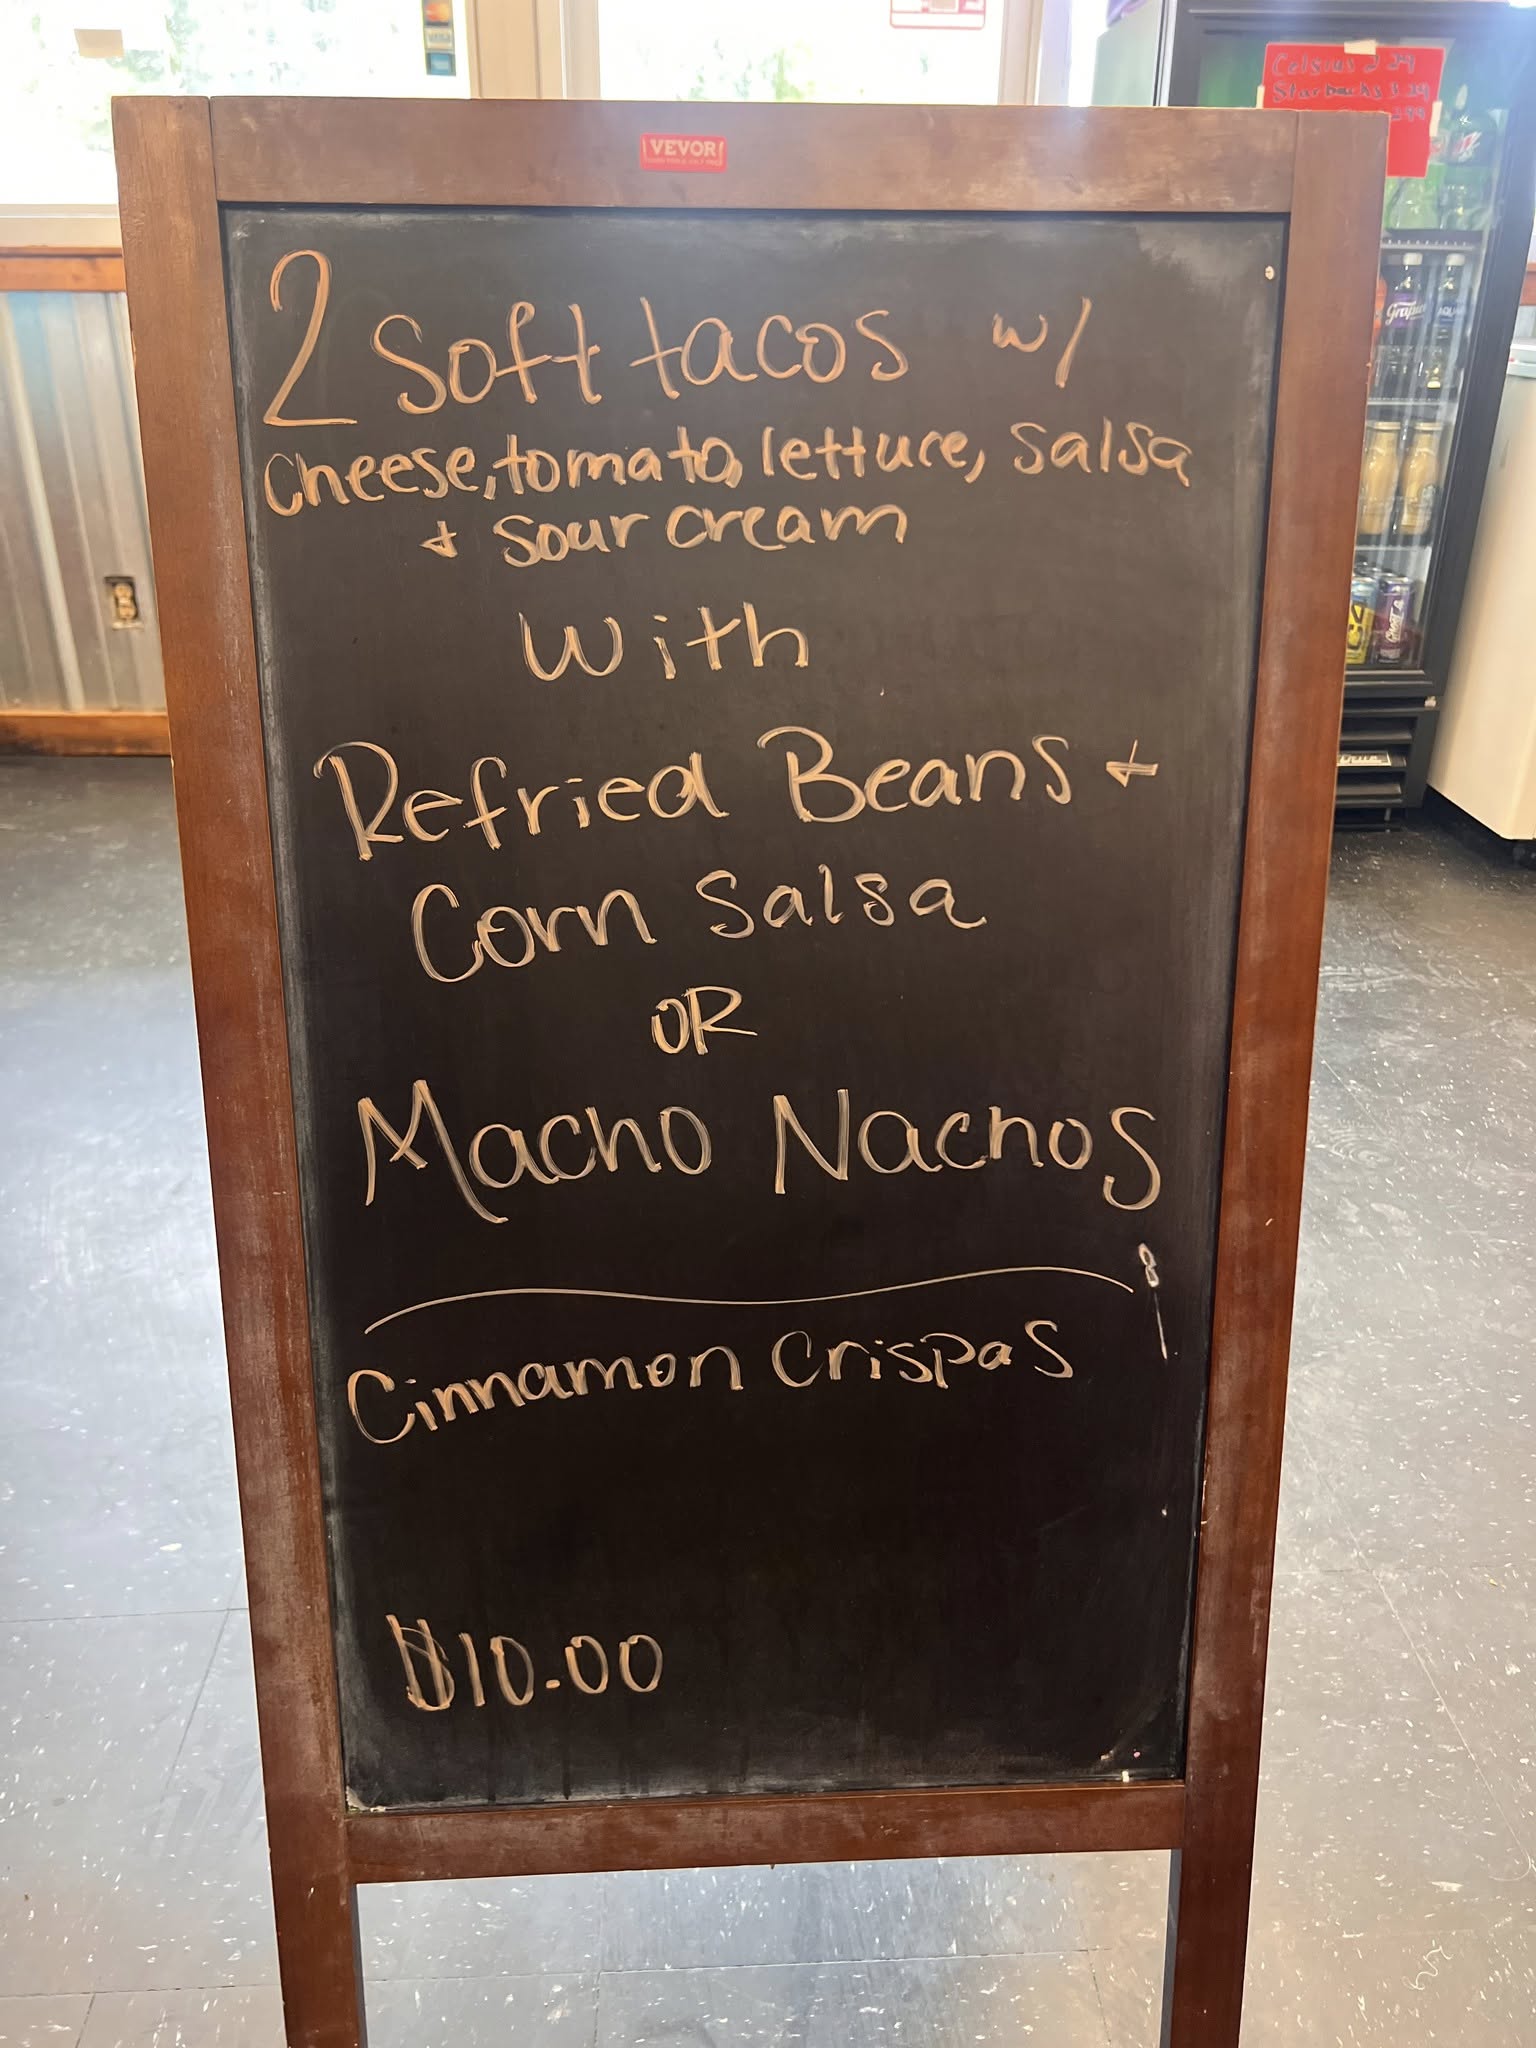 VEVOR
2 Soft tacos w/
Cheese, tomato, lettuce, salsa
+ sour cream
With
Refried Beans +
Corn Salsa
OR
Macho Nachos
Cinnamon Crispas
$10.00
Celsius 2.29
Starbucks 3.29